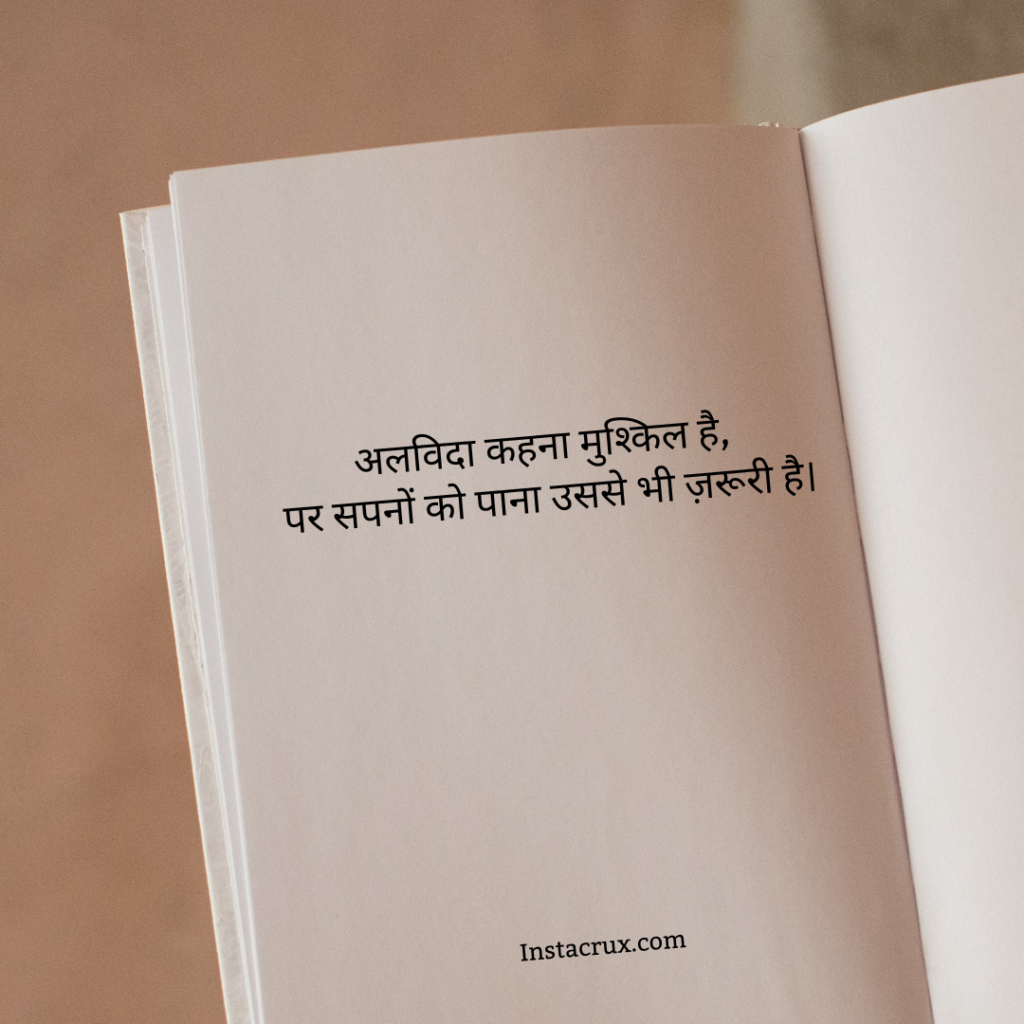 अलविदा कहना मुश्किल है,
पर सपनों को पाना उससे भी ज़रूरी है।
Instacrux.com